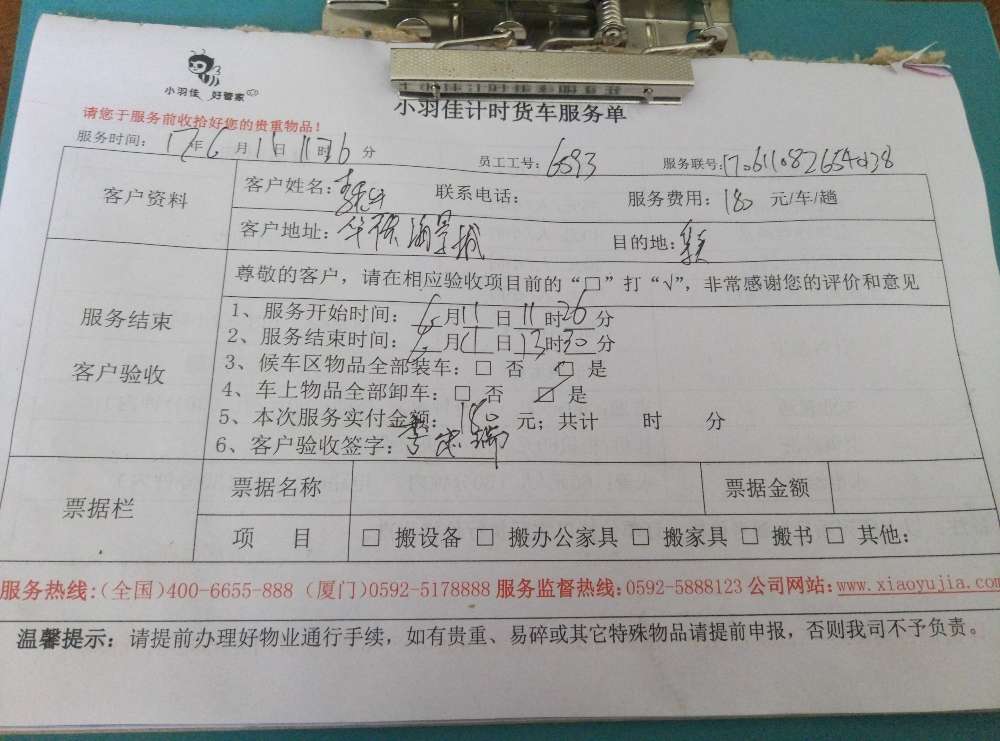 小羽佳 好管家
小羽佳计时货车服务单
请您于服务前收拾好您的贵重物品！
服务时间： 17年6月11日11时26分 员工工号：6593 服务联号：
客户资料 客户姓名： 联系电话： 服务费用：180 元/车/趟
客户地址： 海景城 目的地：
尊敬的客户，请在相应验收项目前的“□”打“√”，非常感谢您的评价和意见
服务结束
客户验收
1、服务开始时间：6月11日11时26分
2、服务结束时间：6月11日13时30分
3、候车区物品全部装车：□ 否 □ 是
4、车上物品全部卸车：□ 否 □ 是
5、本次服务实付金额：180元；共计 时 分
6、客户验收签字：
票据栏 票据名称 票据金额
项 目 □ 搬设备 □ 搬办公家具 □ 搬家具 □ 搬书 □ 其他：
服务热线：(全国)400-6655-888 (厦门)0592-5178888 服务监督热线：0592-5888123 公司网站：www.xiaoyujia.com
温馨提示：请提前办理好物业通行手续，如有贵重、易碎或其它特殊物品请提前申报，否则我司不予负责。